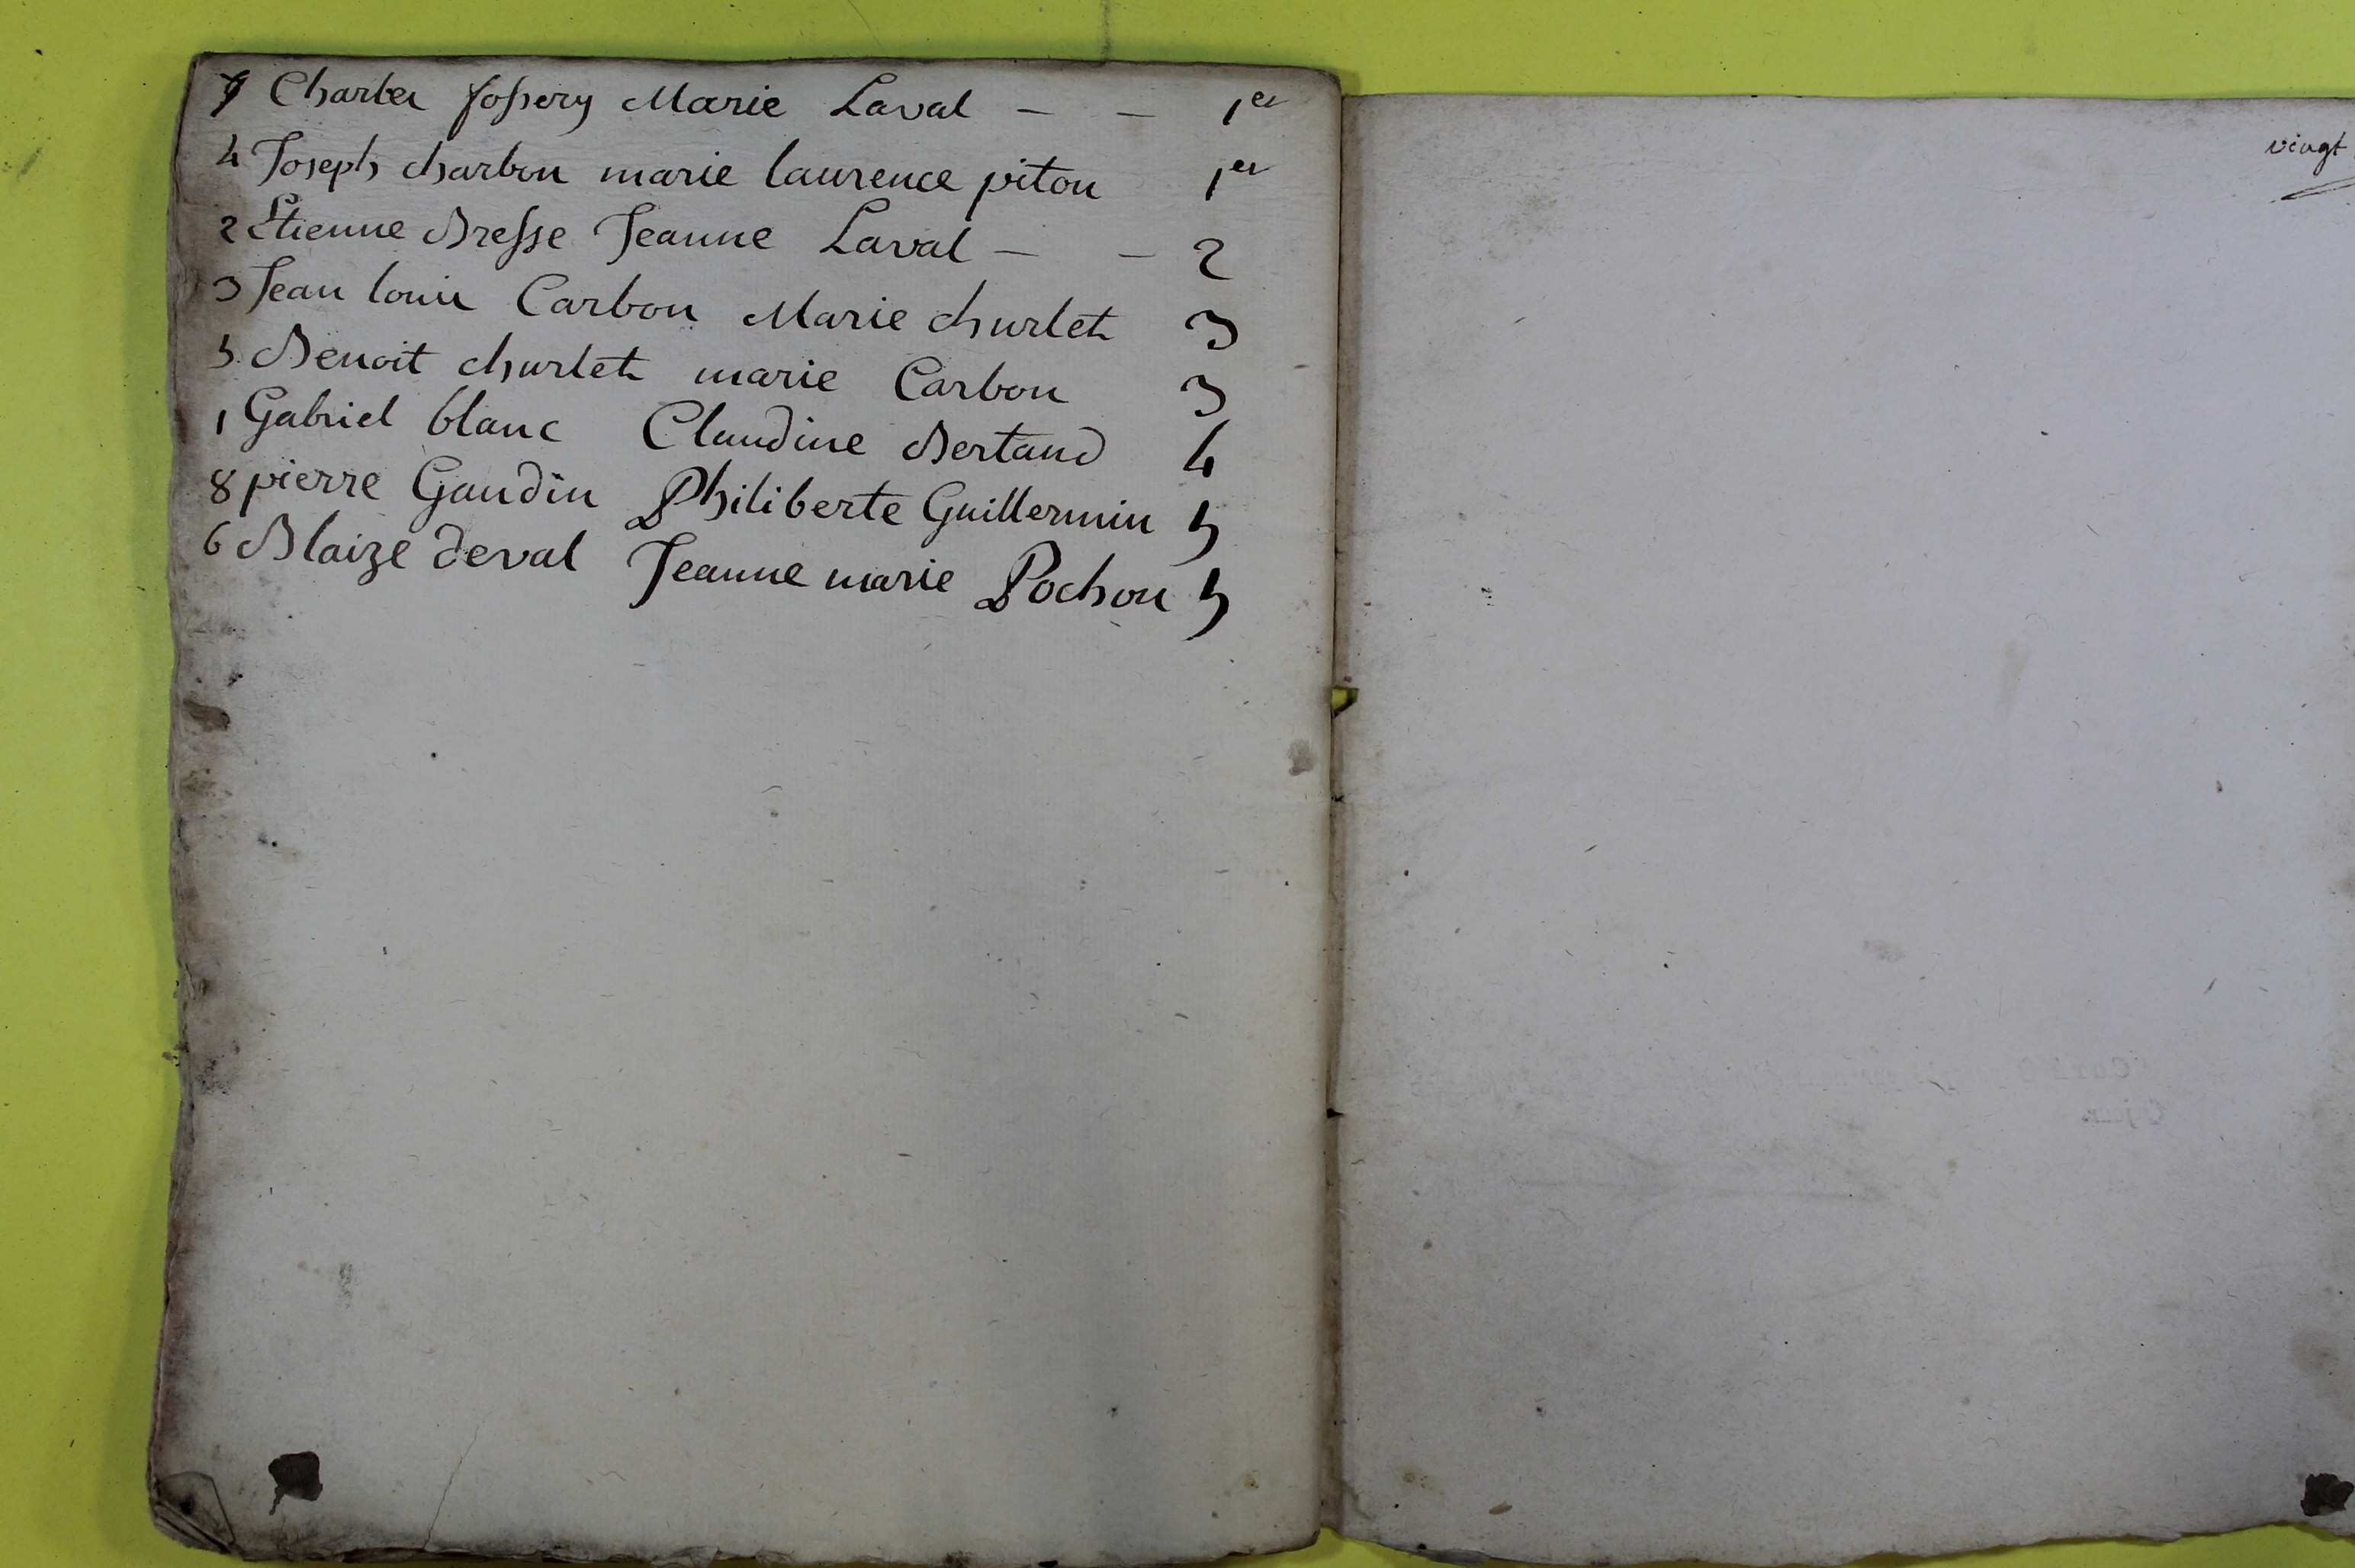 7 Charles fossery Marie Laval — — 1er
4 Joseph charbon marie laurence piton 1er
2 Etienne Bresse Jeanne Laval — — 2
3 Jean louis Carbon Marie churlet 3
5. Benoit churlet marie Carbon 3
1 Gabriel blanc Claudine Bertand 4
8 pierre Gaudin Philiberte Guillermin 5
6 Blaize deval Jeanne marie Pochon 5
vingt